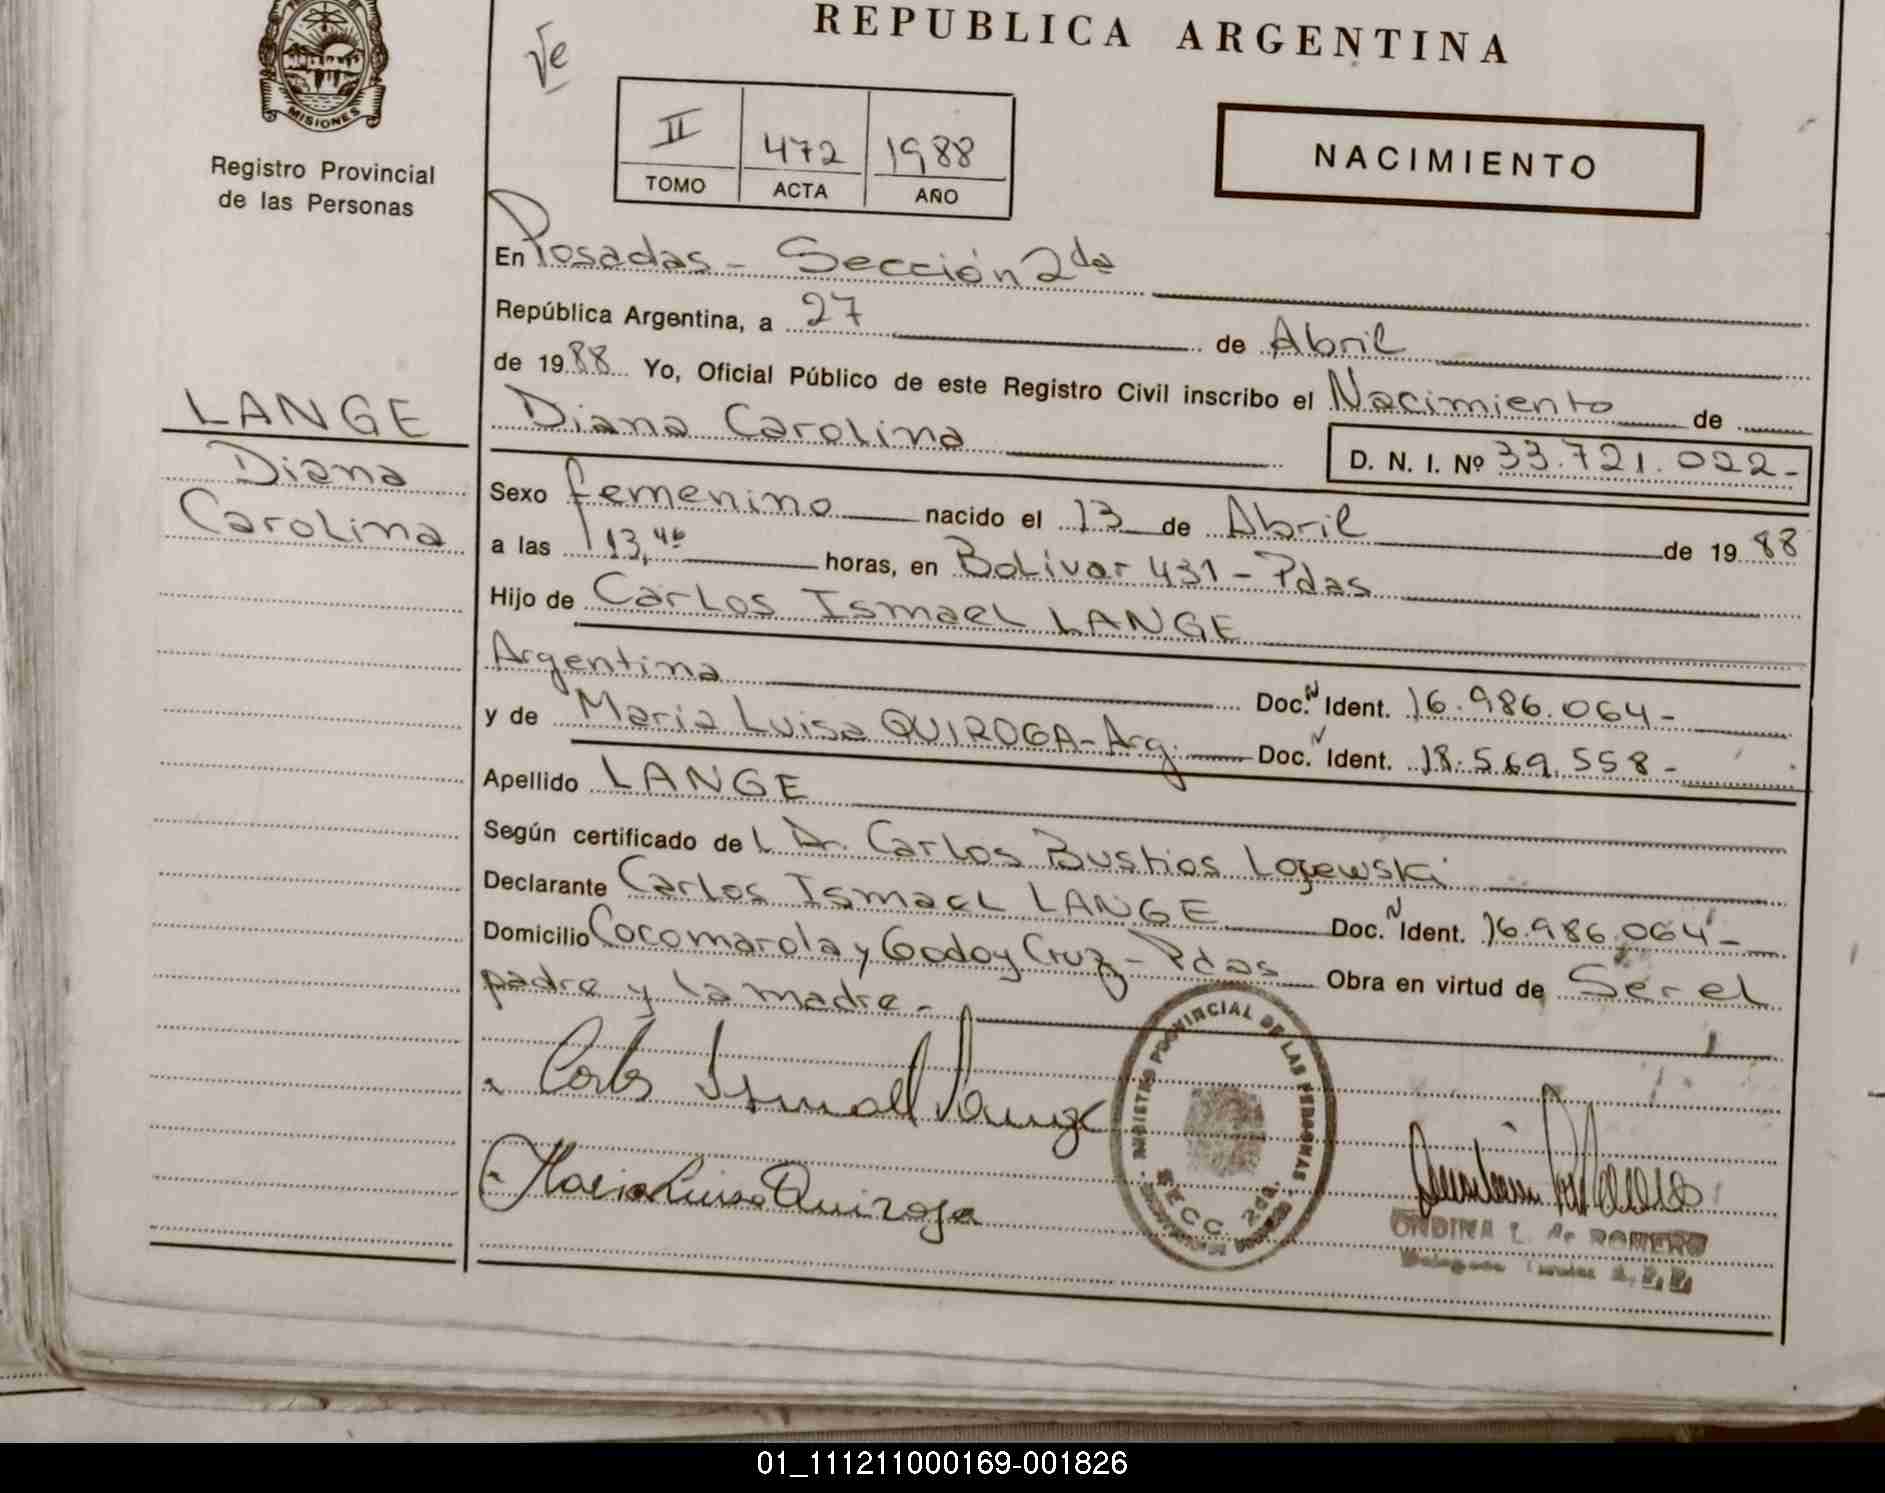 REPUBLICA ARGENTINA
Ve
II 472 1988
TOMO ACTA AÑO
NACIMIENTO
MISIONES
Registro Provincial
de las Personas
LANGE
Diana
Carolina
En Posadas - Sección 2da
República Argentina, a 27 de Abril
de 1988 Yo, Oficial Público de este Registro Civil inscribo el Nacimiento de
Diana Carolina D. N. I. Nº 33.721.022-
Sexo femenino nacido el 13 de Abril de 1988
a las 13,40 horas, en Bolivar 431 - Pdas
Hijo de Carlos Ismael LANGE
Argentina Doc. N Ident. 16.986.064-
y de Maria Luisa QUIROGA - Arg. Doc. N Ident. 18.569.558-
Apellido LANGE
Según certificado de L Dr. Carlos Bustios Lojewski
Declarante Carlos Ismael LANGE Doc. N Ident. 16.986.064-
Domicilio Cocomarola y Godoy Cruz - Pdas Obra en virtud de Ser el
padre y la madre.-
Carlos Ismael Lange
Maria Luisa Quiroga
REGISTRO PROVINCIAL DE LAS PERSONAS
SECC. 2da.
ONDINA L. de ROMERO
01_111211000169-001826